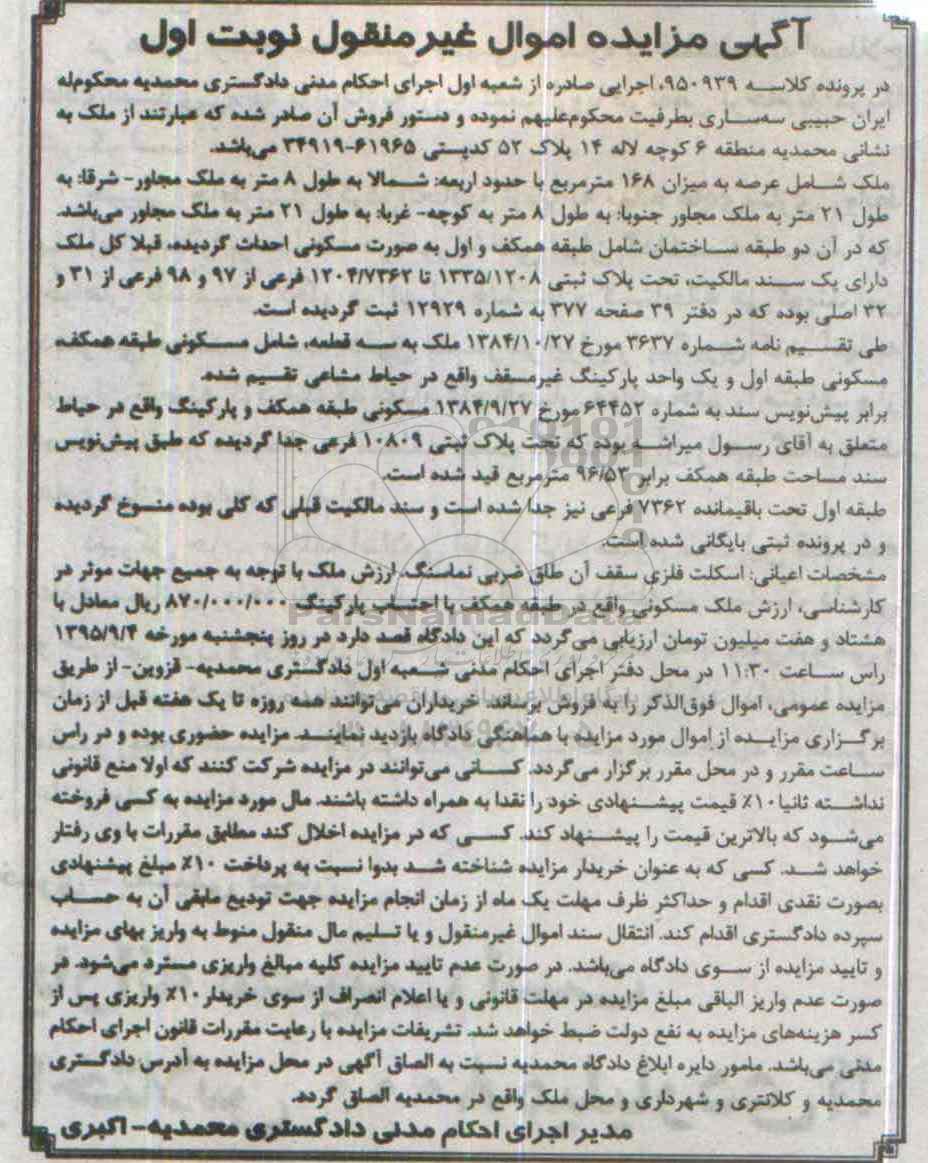 آگهی مزایده اموال غیرمنقول نوبت اول
در پرونده کلاسه ۹۵۰۹۳۹، اجرایی صادره از شعبه اول اجرای احکام مدنی دادگستری محمدیه محکوم‌له
ایران حبیبی سه‌ساری بطرفیت محکوم‌علیهم نموده و دستور فروش آن صادر شده که عبارتند از ملک به
نشانی محمدیه منطقه ۶ کوچه لاله ۱۴ پلاک ۵۲ کدپستی ۶۱۹۶۵-۳۴۹۱۹ می‌باشد.
ملک شامل عرصه به میزان ۱۶۸ مترمربع با حدود اربعه: شمالا به طول ۸ متر به ملک مجاور- شرقا: به
طول ۲۱ متر به ملک مجاور جنوبا: به طول ۸ متر به کوچه- غربا: به طول ۲۱ متر به ملک مجاور می‌باشد.
که در آن دو طبقه ساختمان شامل طبقه همکف و اول به صورت مسکونی احداث گردیده، قبلا کل ملک
دارای یک سند مالکیت، تحت پلاک ثبتی ۱۳۳۵/۱۲۰۸ تا ۱۲۰۴/۷۳۶۲ فرعی از ۹۷ و ۹۸ فرعی از ۳۱ و
۳۲ اصلی بوده که در دفتر ۳۹ صفحه ۳۷۷ به شماره ۱۲۹۲۹ ثبت گردیده است.
طی تقسیم نامه شماره ۳۶۳۷ مورخ ۱۳۸۴/۱۰/۲۷ ملک به سه قطعه، شامل مسکونی طبقه همکف،
مسکونی طبقه اول و یک واحد پارکینگ غیرمسقف واقع در حیاط مشاعی تقسیم شده.
برابر پیش‌نویس سند به شماره ۶۴۴۵۲ مورخ ۱۳۸۴/۹/۲۷ مسکونی طبقه همکف و پارکینگ واقع در حیاط
متعلق به آقای رسول میراشه بوده که تحت پلاک ثبتی ۱۰۸۰۹ فرعی جدا گردیده که طبق پیش‌نویس
سند مساحت طبقه همکف برابر ۹۶/۵۳ مترمربع قید شده است.
طبقه اول تحت باقیمانده ۷۳۶۲ فرعی نیز جدا شده است و سند مالکیت قبلی که کلی بوده منسوخ گردیده
و در پرونده ثبتی بایگانی شده است.
مشخصات اعیانی: اسکلت فلزی سقف آن طاق ضربی نماسنگ، ارزش ملک با توجه به جمیع جهات موثر در
کارشناسی، ارزش ملک مسکونی واقع در طبقه همکف با احتساب پارکینگ ۸۷۰/۰۰۰/۰۰۰ ریال معادل با
هشتاد و هفت میلیون تومان ارزیابی می‌گردد که این دادگاه قصد دارد در روز پنجشنبه مورخه ۱۳۹۵/۹/۴
راس ساعت ۱۱:۳۰ در محل دفتر اجرای احکام مدنی شعبه اول دادگستری محمدیه- قزوین- از طریق
مزایده عمومی، اموال فوق‌الذکر را به فروش برساند. خریداران می‌توانند همه روزه تا یک هفته قبل از زمان
برگزاری مزایده از اموال مورد مزایده با هماهنگی دادگاه بازدید نمایند. مزایده حضوری بوده و در راس
ساعت مقرر و در محل مقرر برگزار می‌گردد. کسانی می‌توانند در مزایده شرکت کنند که اولا منع قانونی
نداشته ثانیا ۱۰٪ قیمت پیشنهادی خود را نقدا به همراه داشته باشند. مال مورد مزایده به کسی فروخته
می‌شود که بالاترین قیمت را پیشنهاد کند. کسی که در مزایده اخلال کند مطابق مقررات با وی رفتار
خواهد شد. کسی که به عنوان خریدار مزایده شناخته شد بدوا نسبت به پرداخت ۱۰٪ مبلغ پیشنهادی
بصورت نقدی اقدام و حداکثر ظرف مهلت یک ماه از زمان انجام مزایده جهت تودیع مابقی آن به حساب
سپرده دادگستری اقدام کند. انتقال سند اموال غیرمنقول و یا تسلیم مال منقول منوط به واریز بهای مزایده
و تایید مزایده از سوی دادگاه می‌باشد. در صورت عدم تایید مزایده کلیه مبالغ واریزی مسترد می‌شود. در
صورت عدم واریز الباقی مبلغ مزایده در مهلت قانونی و یا اعلام انصراف از سوی خریدار ۱۰٪ واریزی پس از
کسر هزینه‌های مزایده به نفع دولت ضبط خواهد شد. تشریفات مزایده با رعایت مقررات قانون اجرای احکام
مدنی می‌باشد. مامور دایره ابلاغ دادگاه محمدیه نسبت به الصاق آگهی در محل مزایده به آدرس دادگستری
محمدیه و کلانتری و شهرداری و محل ملک واقع در محمدیه الصاق گردد.
مدیر اجرای احکام مدنی دادگستری محمدیه- اکبری
ParsNamadData